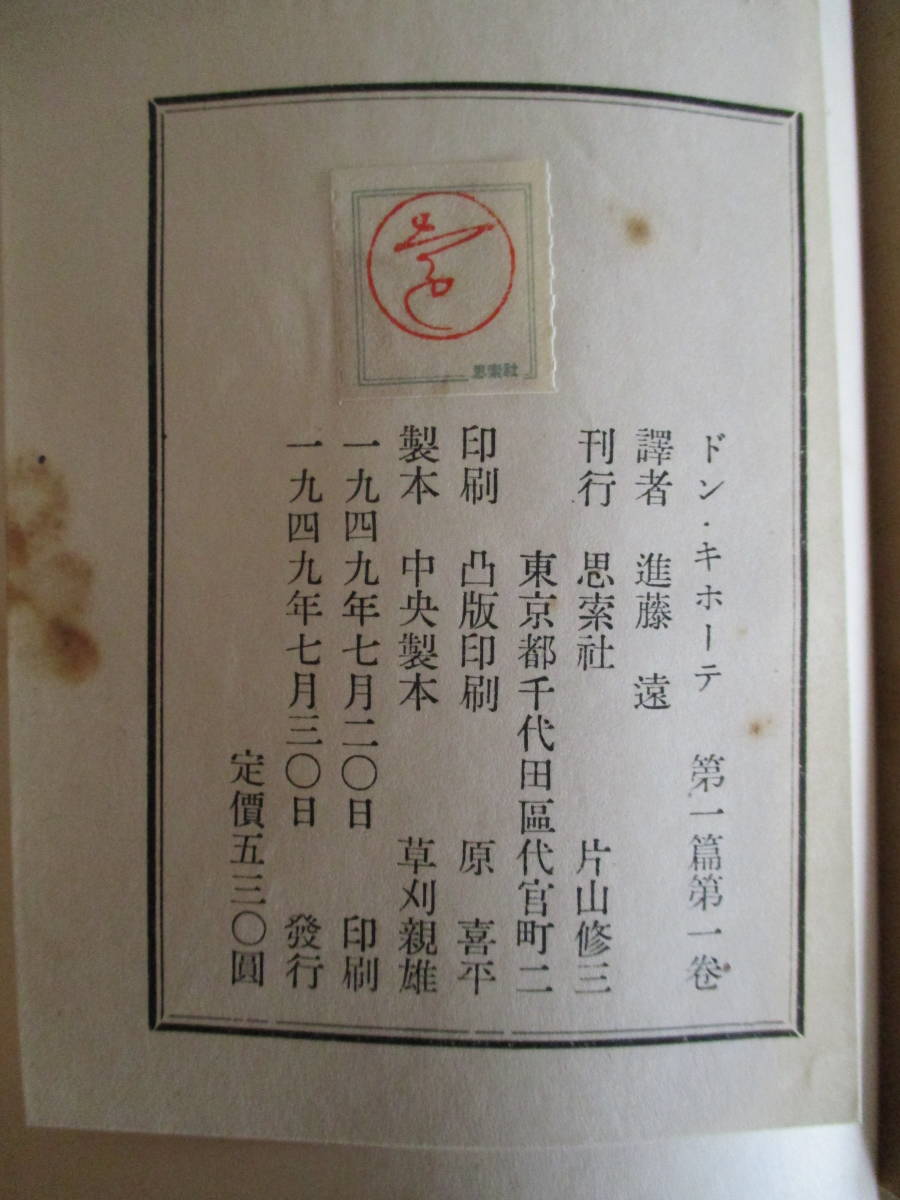 思索社
ドン・キホーテ 第一篇第一卷
譯者 進藤 遠
刊行 思索社 片山修三
東京都千代田區代官町二
印刷 凸版印刷 原 喜平
製本 中央製本 草刈親雄
一九四九年七月二〇日 印刷
一九四九年七月三〇日 發行
定價五三〇圓